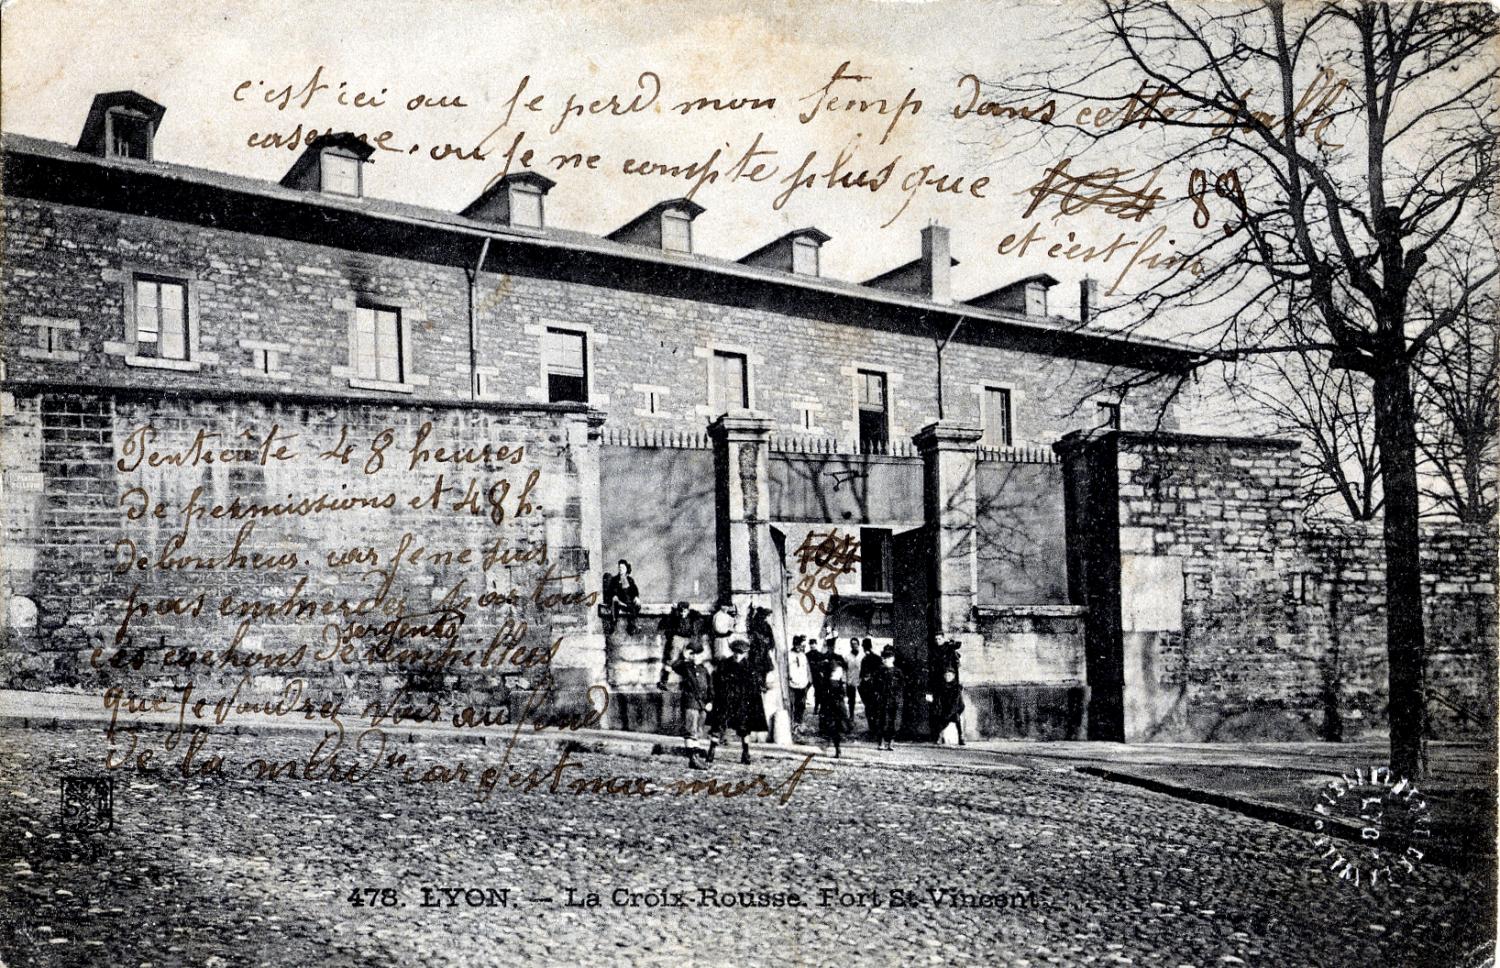 c'est ici ou je perd mon temp dans cette salle
caserne. ou je ne compte plus que 104 89
et c'est fini
Pentecôte 48 heures
de permissions et 48 h.
de bonheur. car je ne suis
pas emmerder par tous
ces cochons de sergents rempilles
que je voudrez voir au fond
de la merde car c'est ma mort
104
89
478. LYON. — La Croix-Rousse. Fort St-Vincent.
BIBLIOTHEQUE DE LA VILLE
LYON